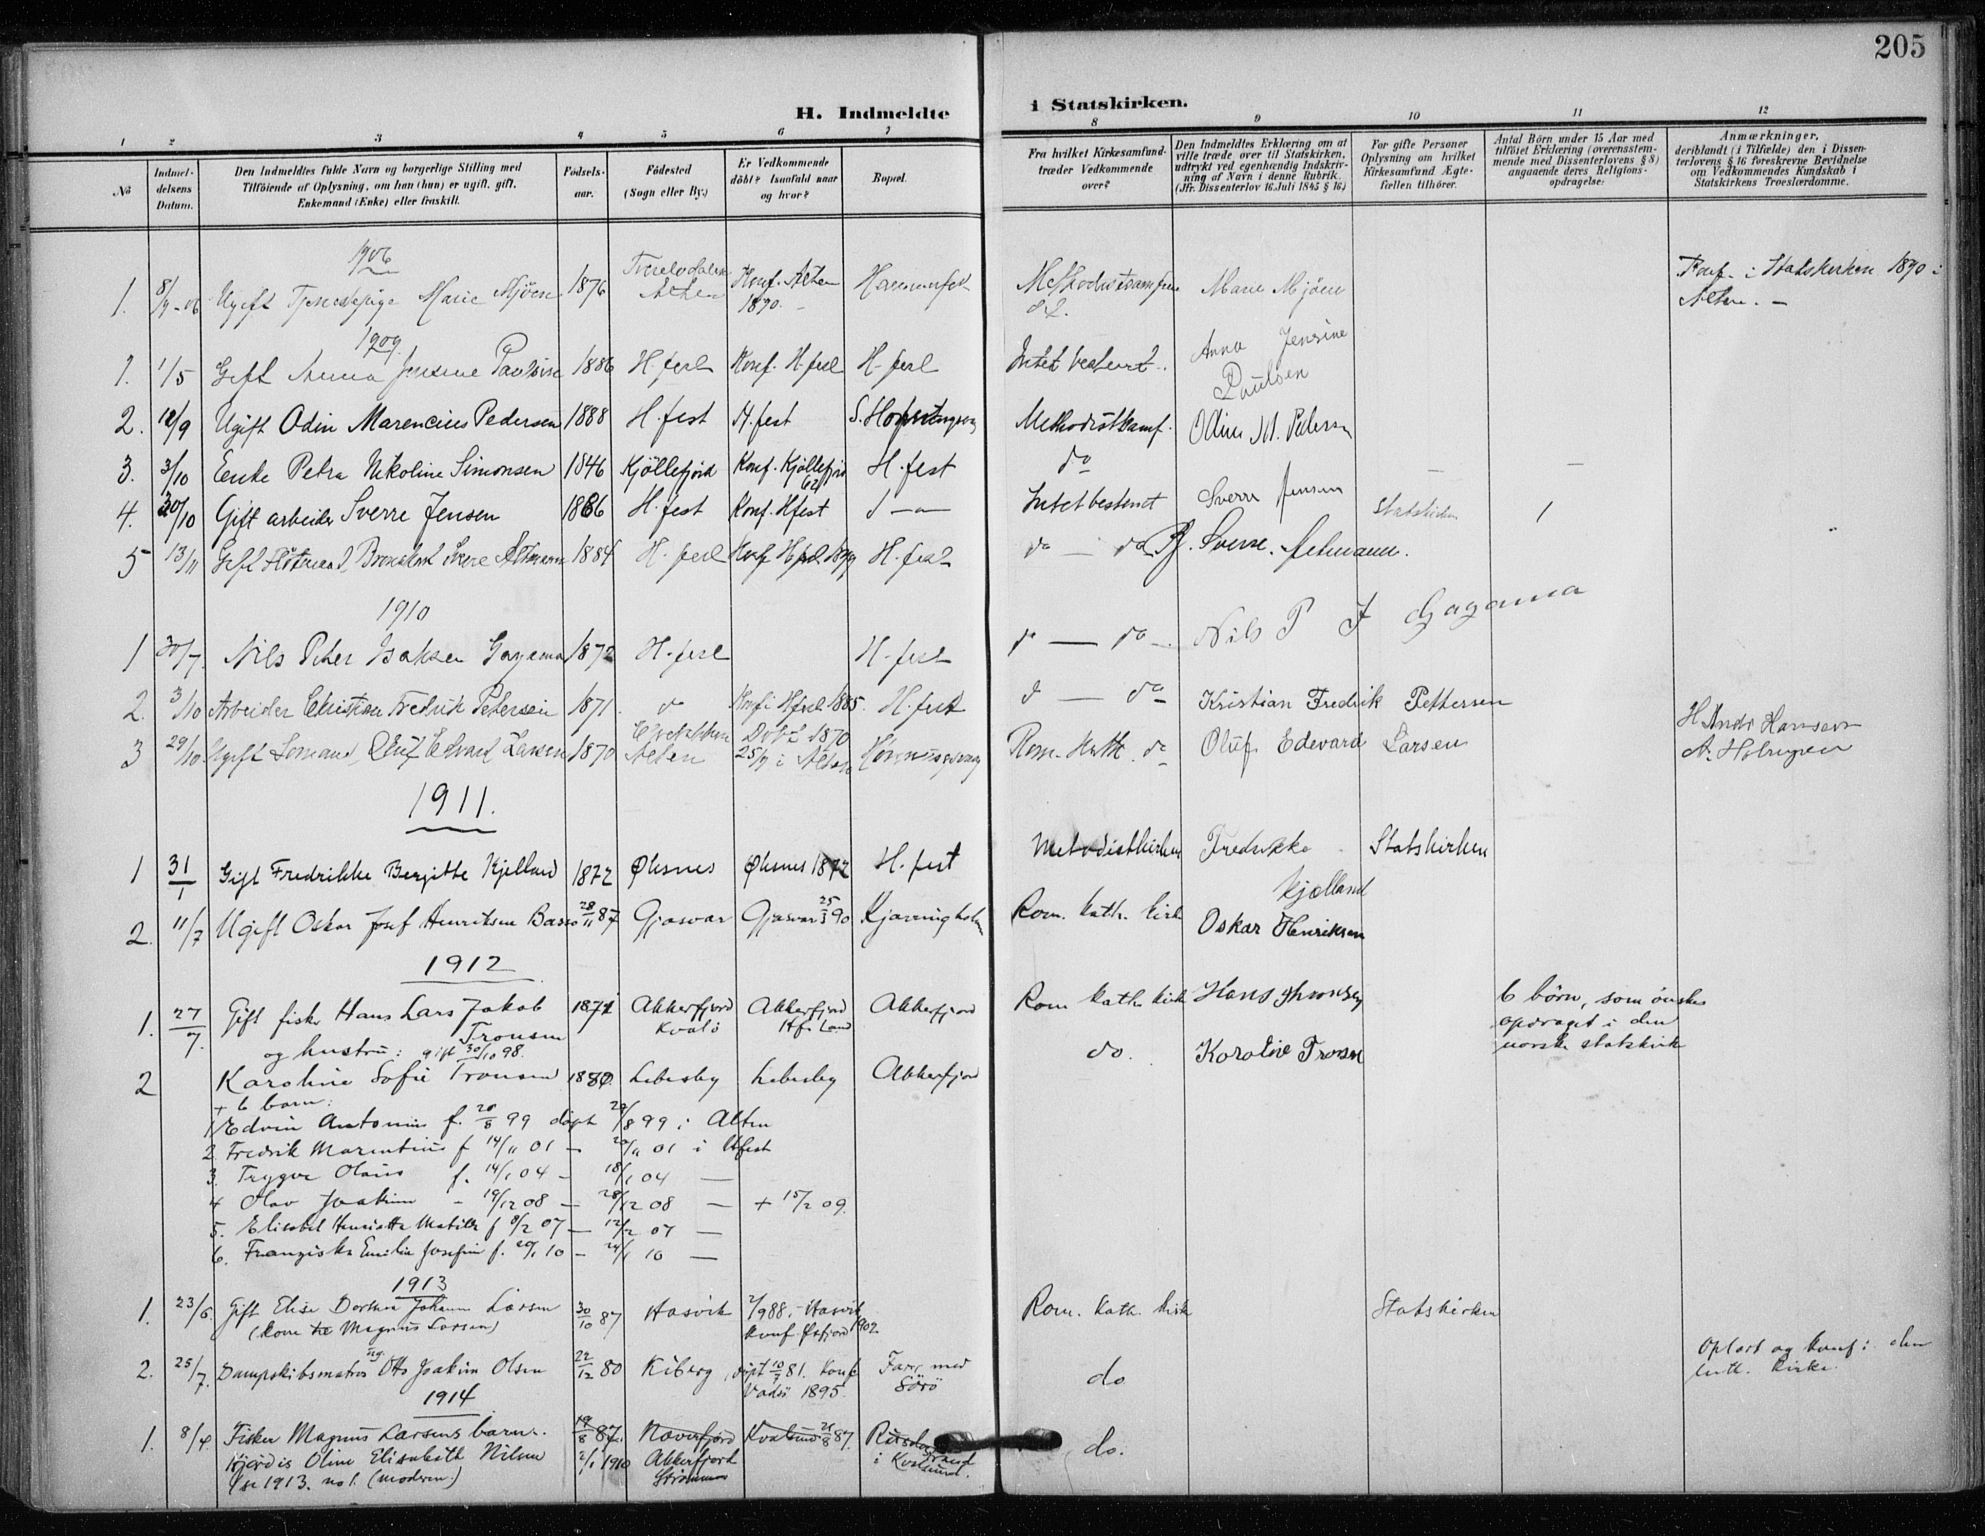 205
H. Indmeldte i Statskirken.
1 2 3 4 5 6 7 8 9 10 11 12
No
Indmeldelsens Datum.
Den Indmeldtes fulde Navn og borgerlige Stilling med
Tilföiende af Oplysning, om han (hun) er ugift, gift,
Enkemand (Enke) eller fraskilt.
Födselsaar.
Födested
(Sogn eller By.)
Er Vedkommende
döbt? Isaafald naar
og hvor?
Bopæl.
Fra hvilket Kirkesamfund
træder Vedkommende
over?
Den Indmeldtes Erklæring om at
ville træde over til Statskirken,
udtrykt ved egenhændig Indskrivning
af Navn i denne Rubrik.
(Jfr. Dissenterlov 16 Juli 1845 § 16.)
For gifte Personer
Oplysning om hvilket
Kirkesamfund Ægtefællen
tilhører.
Antal Börn under 15 Aar med
tilföiet Erklæring (overensstemmende
med Dissenterlovens § 8)
angaaende deres Religionsopdragelse:
Anmærkninger,
deriblandt (i Tilfælde) den i Dissenterlovens
§ 16 foreskrevne Bevidnelse
om Vedkommendes Kundskab i
Statskirkens Troeslærdomme.
1906
1. 8/9-06 Ugift Tjenestepige Marie Mjöen 1876 Alten Konf. Alten 1890. Hammerfest Marie Mjöen Konf. i Statskirken 1890 i Alten.
1909
1. 1/5 Gift Anna Jensine Paulsen 1886 H.fest Konf. H.fest H.fest Intet bestemt. Anna Jensine Paulsen
2. 12/9 Ugift Odin Marencius Pedersen 1888 H.fest H.fest Methodistsamf. Odin M. Pedersen
3. 3/10 Enke Petra Nikoline Simonsen 1846 Kjöllefjord Konf. Kjöllefjord 62 H.fest do — —
4. 30/10 Gift arbeider Sverre Jensen 1886 H.fest Konf. Hfest Intet bestemt Sverre Jensen Statskirken 1
5 13/11 Gift 1884 H.fest Konf Hfest 1899 H.fest do — do Sverre
1910
1 30/7. Nils Peter Isaksen Gagama 1872 H.fest H.fest do — do Nils P I Gagama
2. 3/10 Arbeider Christian Fredrik Petersen 1871 do Konf i Hfest 1885. H.fest do — do Kristian Fredrik Pettersen
3 29/10 Ugift Sömand, Oluf Edvard Larsen 1870 Alten Döbt 1870 25/9 i Alten Honningsvaag Rom. Kath. do Oluf Edevard Larsen H. Andr Hansen
1911.
1 31/1 Gift Fredrikke Bergitte Kjelland 1872 Öksnes Öksnes 1872 H.fest Metodistkirken Fredrikke Kjelland Statskirken
2. 11/7 Ugift Oskar Josef Henriksen Basso 28/11 87 Gjesvær Gjesvær 25/3 90 Kjærringholm Rom. kath. kirke Oskar Henriksen
1912
1. 27/7. Gift fisker Hans Lars Jakob Tronsen 1871 Akkerfjord Kvalö Akkerfjord Hf. Land Akkerfjord Rom kath. kirke Hans Thronsen 6 börn, som önskes
opdraget i den
norske statskirke
og hustru: gift 30/10 98.
2 Karoline Sofie Tronsen 1880 Lebesby Lebesby Akkerfjord do. Karoline Tronsen
+ 6 barn:
1 Edvin Antonius f. 20/8 99 döpt 29/8 99 i Alten
2. Fredrik Marentius f 14/11 01 — 20/11 01 i Hfest
3. Trygve Olaus f. 14/1 04 — 18/1 04 —
4 Olav Joakim — 19/12 08 — 28/12 08 — + 15/2 09.
5. Elisabet Henriette Matilde f 8/2 07 — 12/2 07 —
6. Franziska Emilie Josefine f. 20/1 10 — 24/1 10 —
1913
1. 23/6. Gift Elise Dorthea Johanne Larsen 30/10 87 Hasvik 2/9 88 i Hasvik konf. Öxfjord 1902. Rom. Kath. kirk Statskirken
(kone til Magnus Larsen)
2. 25/7. Dampskibsmatros ug. Otto Joakim Olsen 22/12 80 Kiberg döpt 10/7 81. konf. Vadsö 1895. Farer med Sörö do Oplært og konf i den
luth. kirke.
1914
1. 8/4. Fisker Magnus Larsens barn. 19/8 87. Naverfjord Kvalsund 21/8 87. i Kvalsund. do.
Hjördis Oline Elisabeth Nilsen 2/1 1910 Akkerfjord Strömmen
(se 1913. no 1. (moderen.)